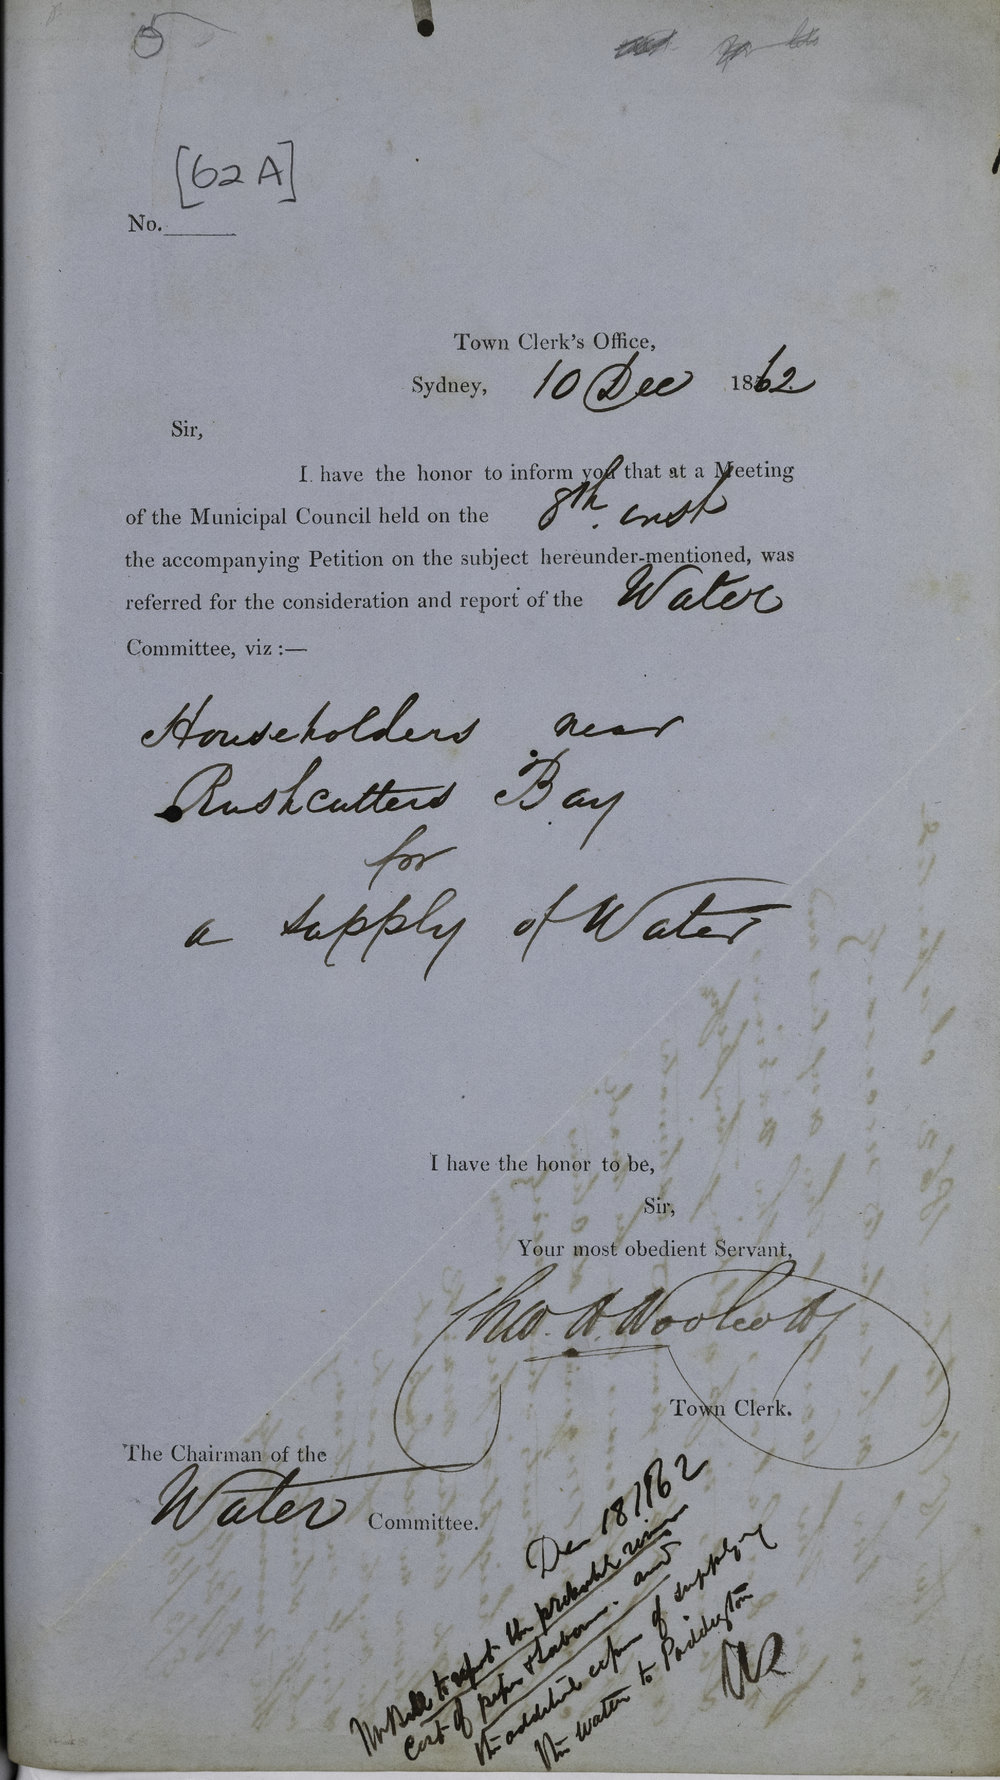 [62A]
No.
Town Clerk's Office,
Sydney, 10 Dec 1862.
Sir,
I have the honor to inform you that at a Meeting
of the Municipal Council held on the 8th. inst
the accompanying Petition on the subject hereunder-mentioned, was
referred for the consideration and report of the Water
Committee, viz :—
Householders near
Rushcutters Bay
for
a supply of Water
I have the honor to be,
Sir,
Your most obedient Servant,
Chas. H. Woolcott
Town Clerk.
The Chairman of the
Water Committee.
Dec 18/1862
Mr Bell to report the probable
Cost of pipes & labour. and
the additional expense of supplying
the water to Paddington